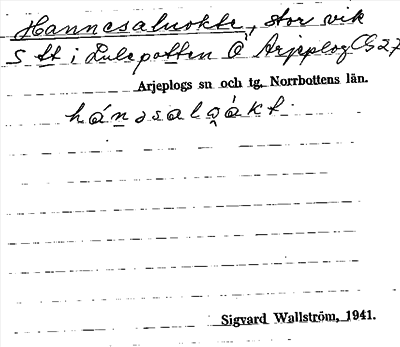 Hannesaluokte, stor vik
S tt i Lulepotten Ö Arjeplog CG 27
Arjeplogs sn och tg, Norrbottens län.
hánəsalǫákt.
Sigvard Wallström, 1941.